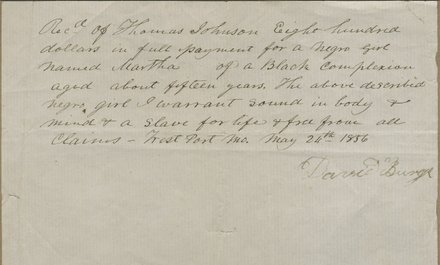 Recd of Thomas Johnson Eight hundred
dollars in full payment for a negro Girl
named Martha of a Black Complexion
aged about fifteen years. The above described
negro girl I warrant sound in body &
mind & a Slave for life & free from all
Claims - West Port Mo. May 24th 1856
David Burge